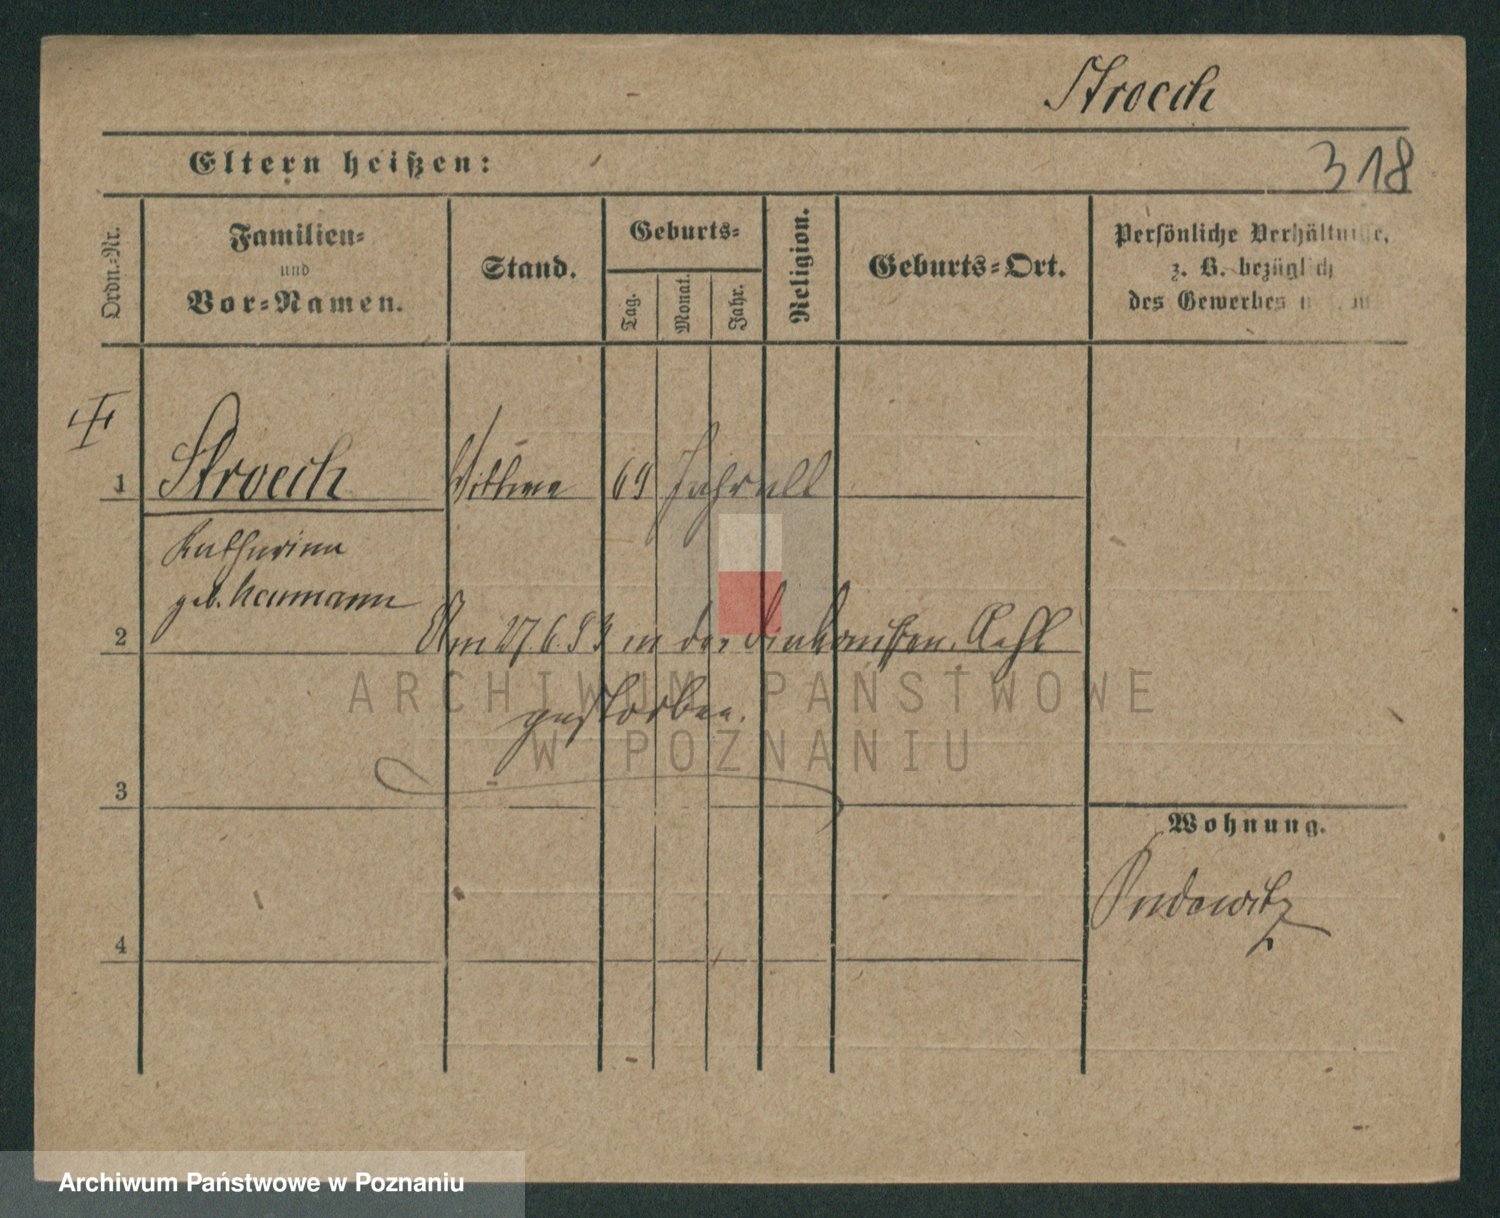 Stroech
Eltern heißen:
318
Ordn.-Nr.
Familien-
und
Vor-Namen.
Stand.
Geburts-
Tag.
Monat.
Jahr.
Religion.
Geburts-Ort.
Persönliche Verhältnisse,
z. B. bezüglich
des Gewerbes
1 Stroech Wittwe 69 Jahr alt
Katharina
geb. Neumann
2 Am 27.6.93 in der
gestorben.
ARCHIWUM PAŃSTWOWE
W POZNANIU
3
Wohnung.
Pudewitz
4
Archiwum Państwowe w Poznaniu